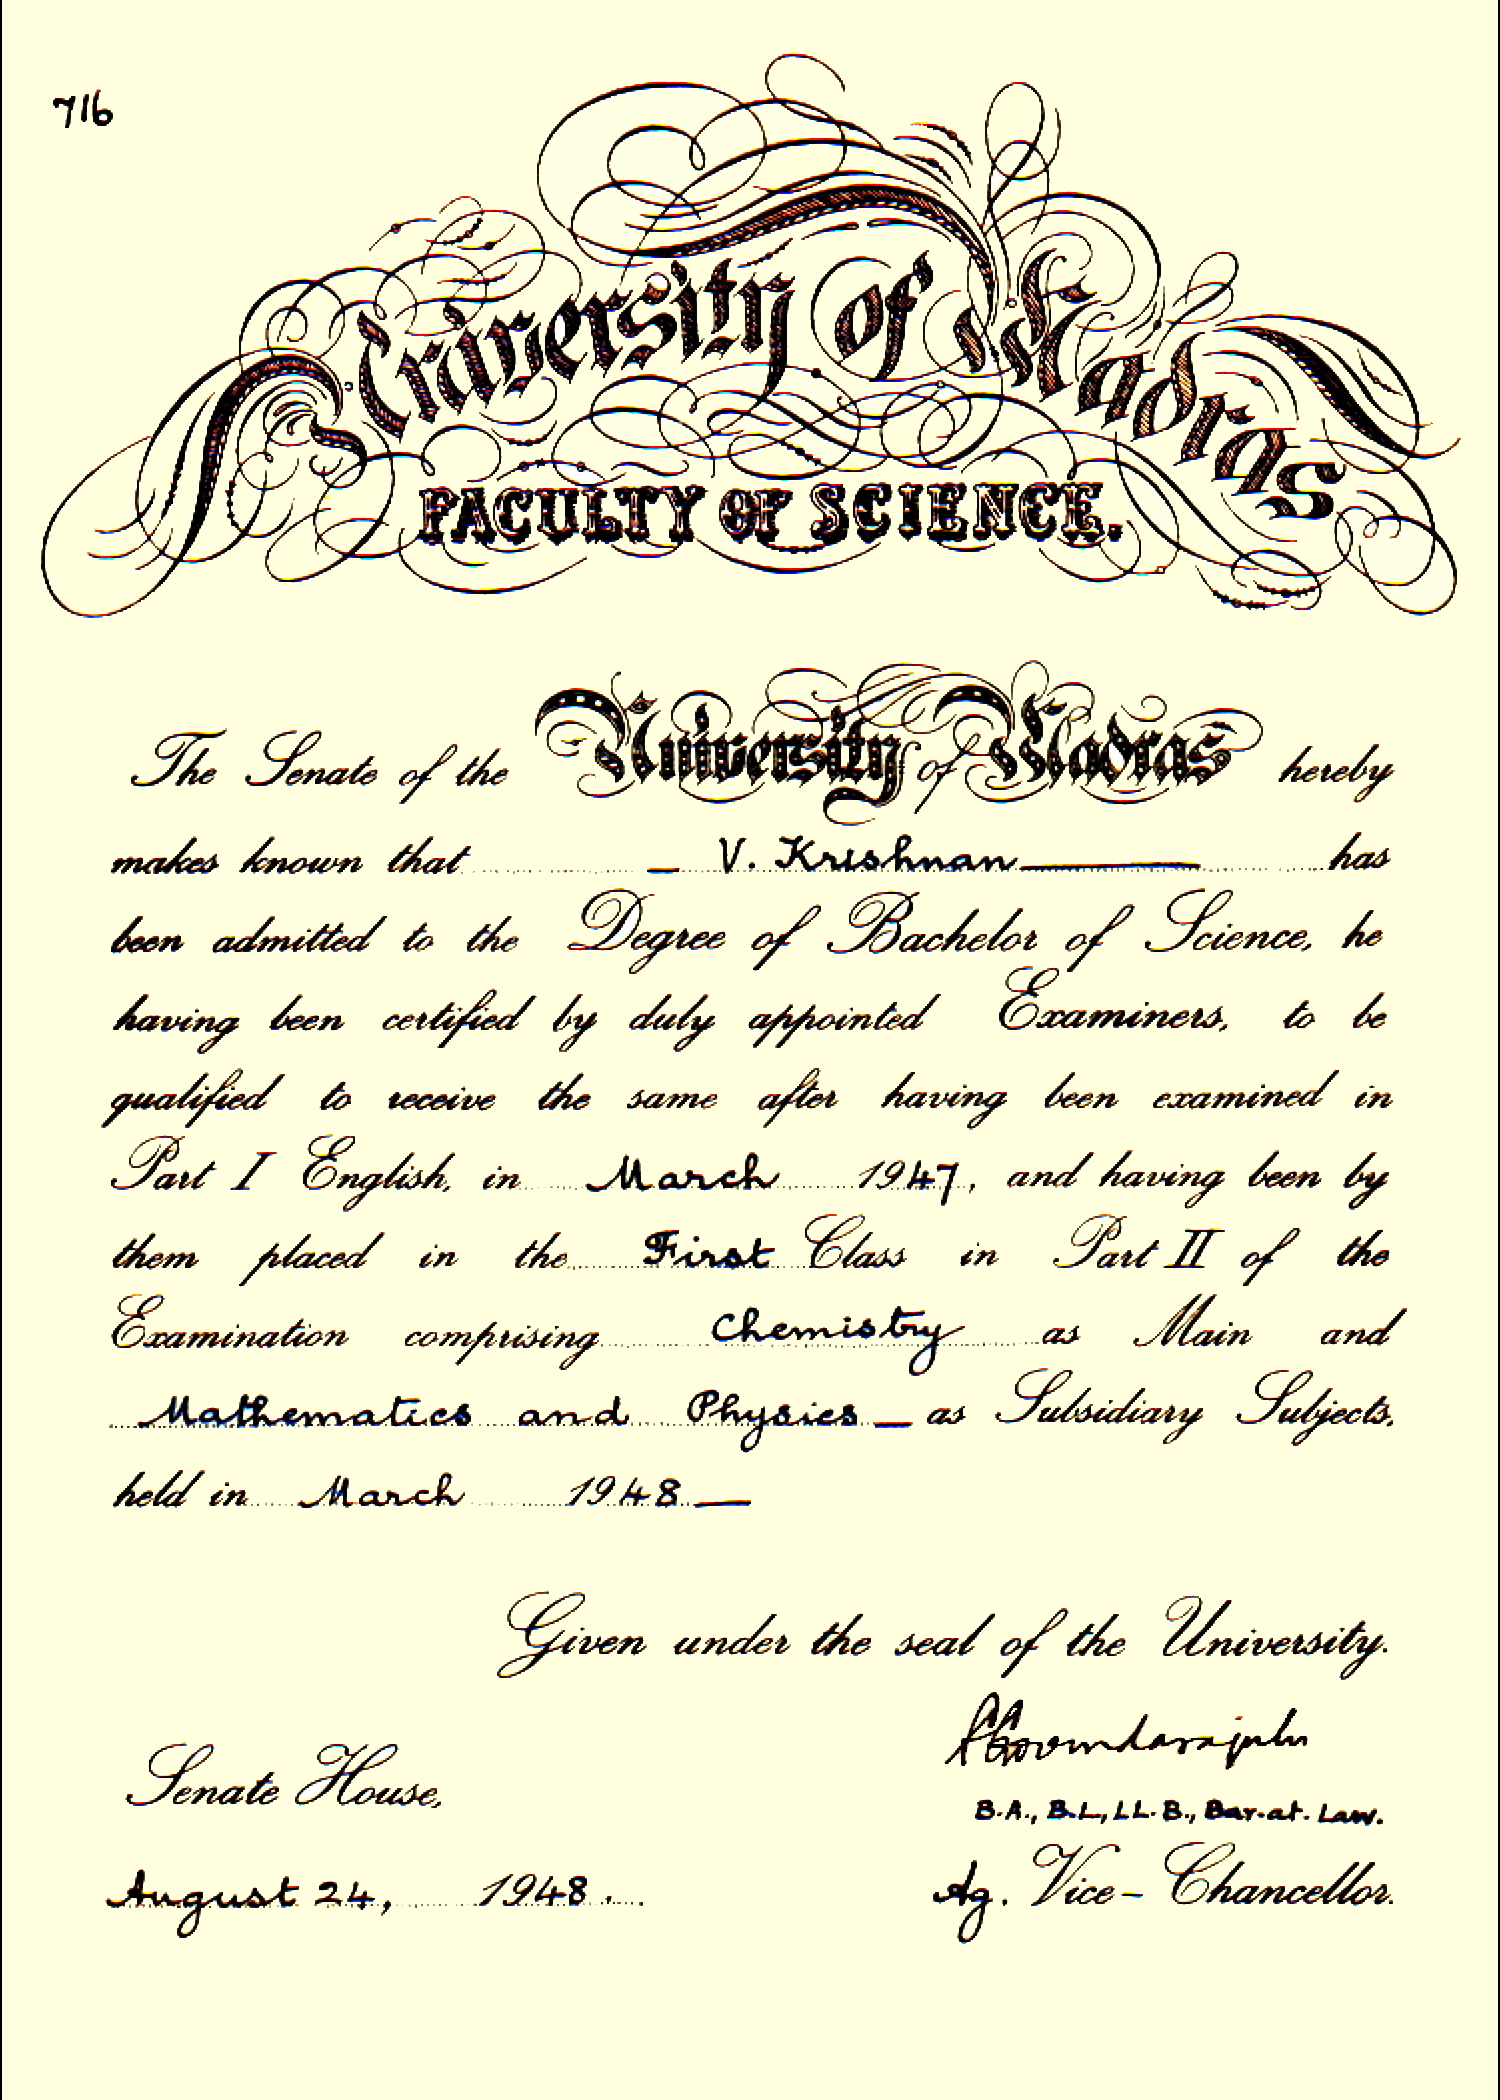 716
University of Madras
FACULTY OF SCIENCE.
The Senate of the University of Madras hereby
makes known that V. Krishnan has
been admitted to the Degree of Bachelor of Science, he
having been certified by duly appointed Examiners, to be
qualified to receive the same after having been examined in
Part I English, in March 1947, and having been by
them placed in the First Class in Part II of the
Examination comprising Chemistry as Main and
Mathematics and Physics as Subsidiary Subjects,
held in March 1948
Given under the seal of the University.
Govindarajulu
Senate House,
B.A., B.L., LL.B., Bar-at-Law.
August 24, 1948.
Ag. Vice-Chancellor.